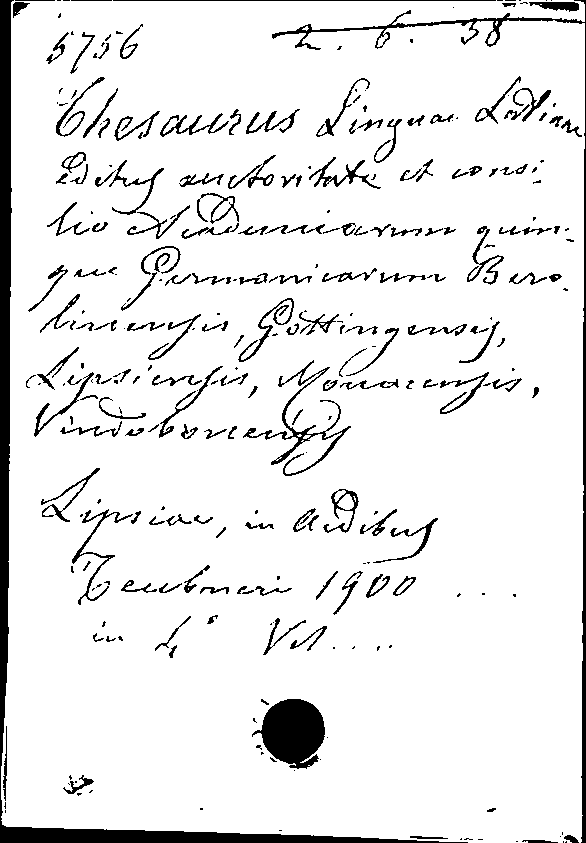 5756 2. 6. 38
Thesaurus Linguae Latinae
Editus auctoritate et consi-
lio Academicarum quin-
que Germanicarum Bero-
linensis, Gottingensis,
Lipsiensis, Monacensis,
Vindobonensis
Lipsiae, in Aedibus
Teubneri 1900 ....
in 4° Vol....